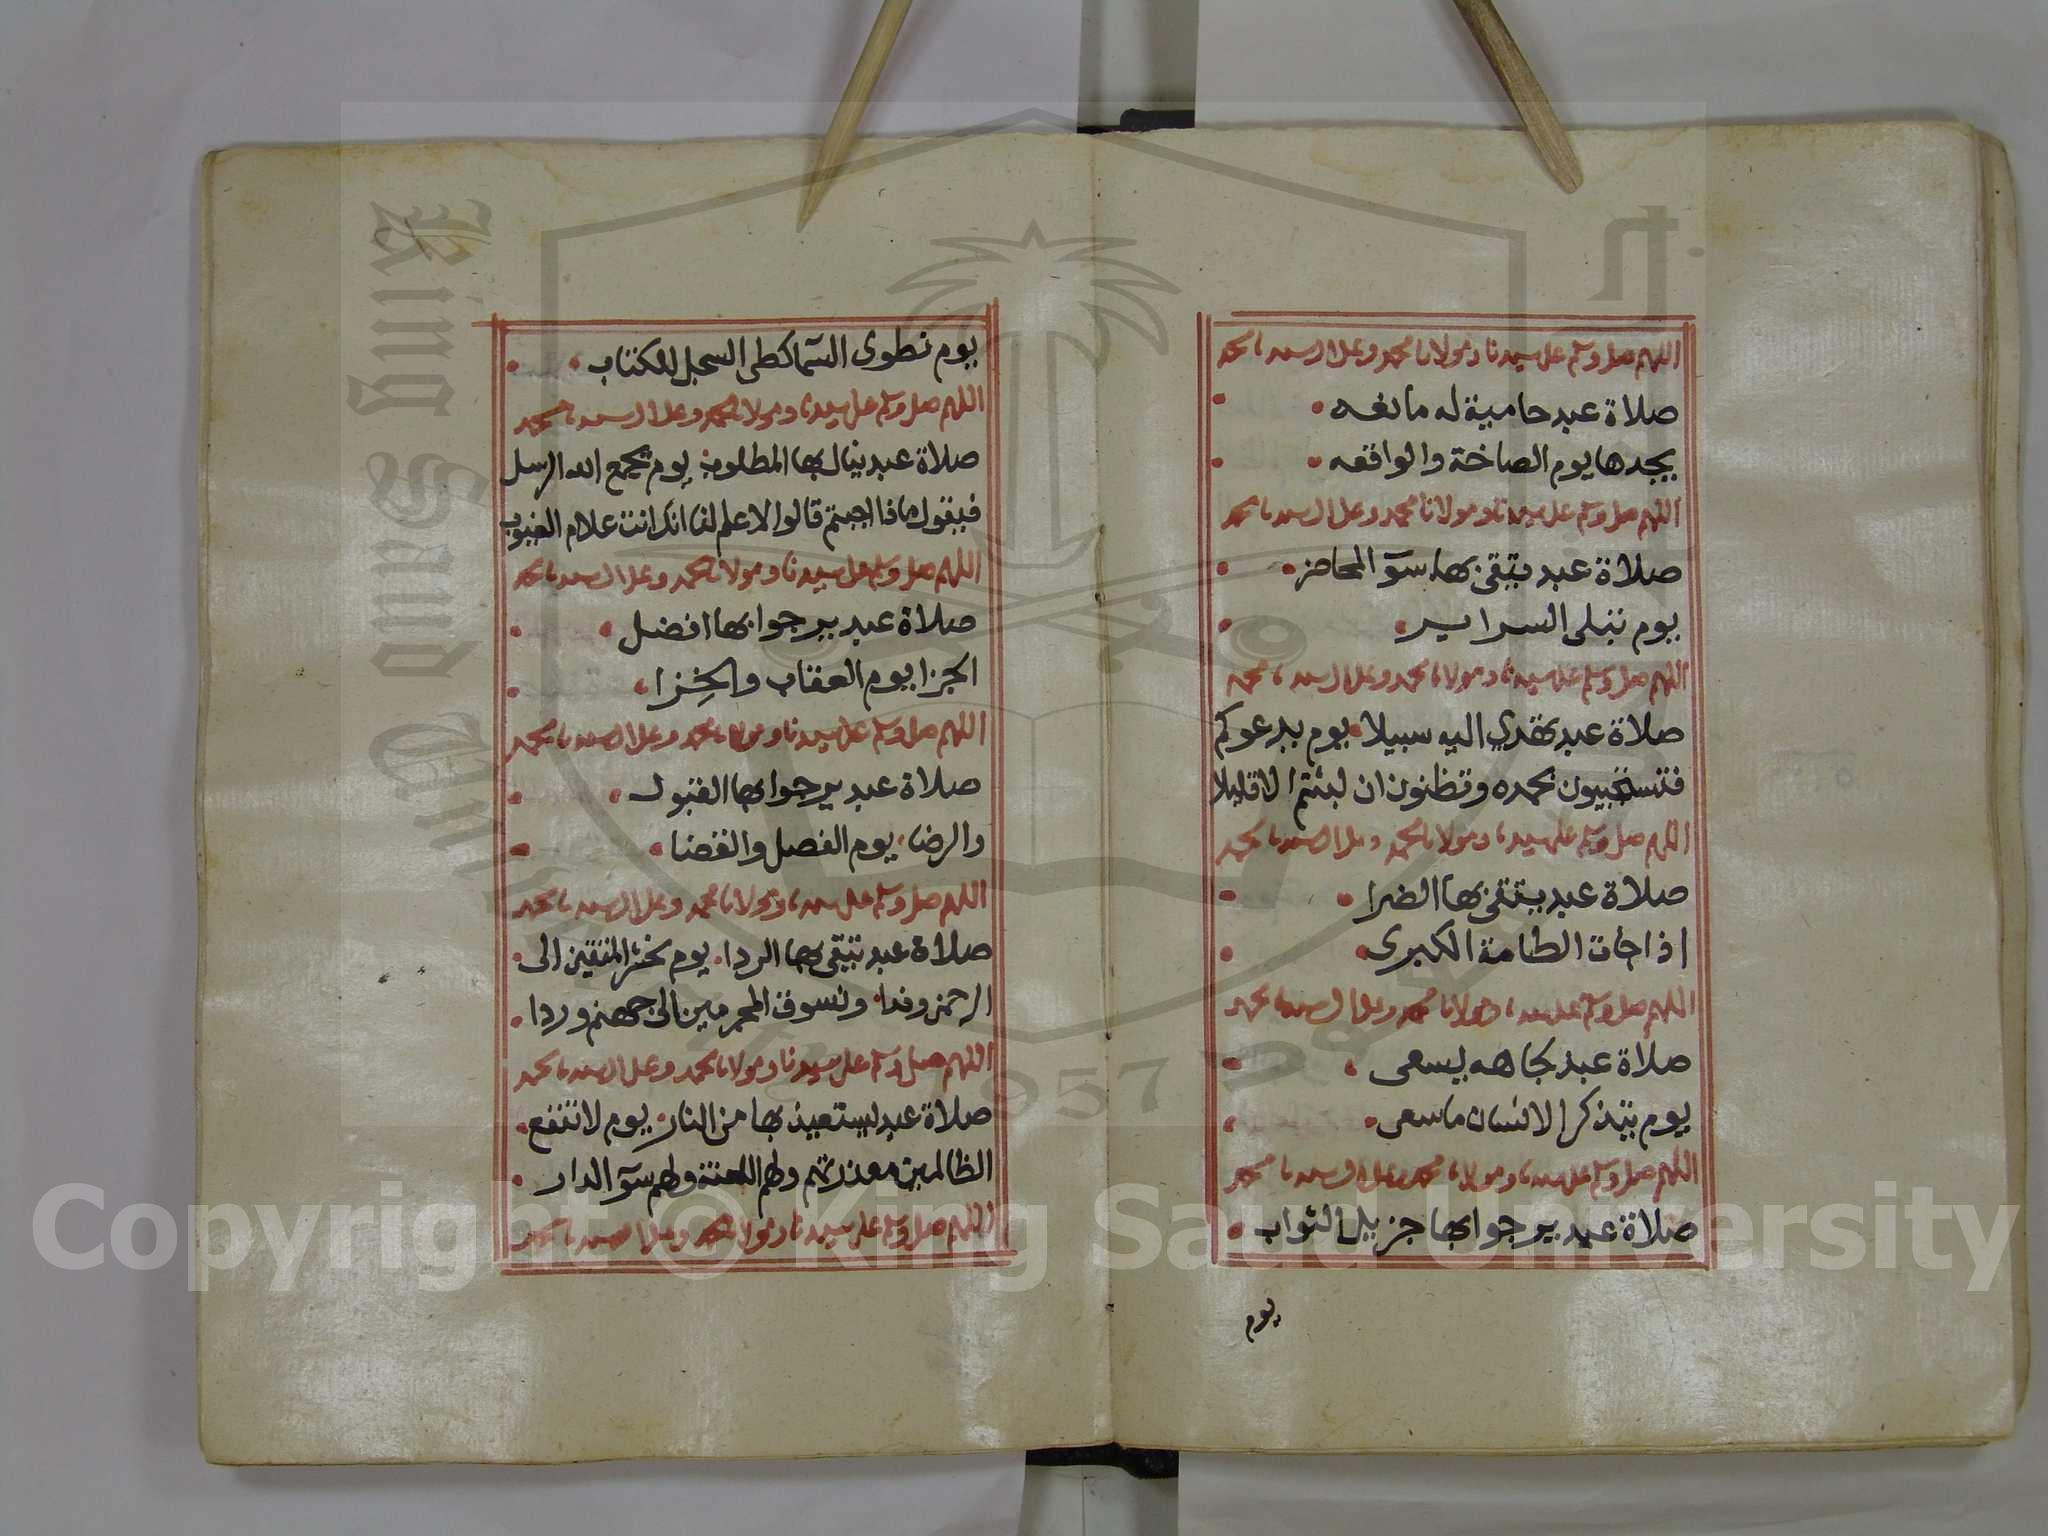 اللهم صل وسلم على سيدنا ومولانا محمد وعلى ال سيدنا محمد
صلاة عبد حامية له مانعه
يجدها يوم الصاخة والواقعه
اللهم صل وسلم على سيدنا ومولانا محمد وعلى ال سيدنا محمد
صلاة عبد يتقى بها سوٓ المحاضر
يوم تبلى السراير
اللهم صل وسلم على سيدنا ومولانا محمد وعلى ال سيدنا محمد
صلاة عبد يهتدي اليه سبيلا يوم يدعوكم
فتستجيبون بحمده وتظنون ان لبثتم الا قليلا
اللهم صل وسلم على سيدنا ومولانا محمد وعلى ال سيدنا محمد
صلاة عبد يتقى بها الضرا
اذا جات الطامة الكبرى
اللهم صل وسلم على سيدنا ومولانا محمد وعلى ال سيدنا محمد
صلاة عبد بجاهه يسعى
يوم يتذكر الانسان ما سعى
اللهم صل وسلم على سيدنا ومولانا محمد وعلى ال سيدنا محمد
صلاة عبد يرجوا بها جزيل الثواب
يوم
يوم نطوى السٓما كطى السجل للكتاب
اللهم صل وسلم على سيدنا ومولانا محمد وعلى ال سيدنا محمد
صلاة عبد ينال بها المطلوب يوم يجمع الله الرسل
فيقول ماذا اجبتم قالوا لا علم لنا انك انت علام الغيوب
اللهم صل وسلم على سيدنا ومولانا محمد وعلى ال سيدنا محمد
صلاة عبد يرجوا بها افضل
الجزا يوم العقاب والخزا
اللهم صل وسلم على سيدنا ومولانا محمد وعلى ال سيدنا محمد
صلاة عبد يرجوا بها القبول
والرضا يوم الفصل والقضا
اللهم صل وسلم على سيدنا ومولانا محمد وعلى ال سيدنا محمد
صلاة عبد يتقى بها الردا يوم نحشر المتقين الى
الرحمن وفدا ونسوق المجرمين الى جهنم وردا
اللهم صل وسلم على سيدنا ومولانا محمد وعلى ال سيدنا محمد
صلاة عبد يستعيذ بها من النار يوم لا تنفع
الظالمين معذرتهم ولهم اللعنة ولهم سوٓ الدار
اللهم صل وسلم على سيدنا ومولانا محمد وعلى ال سيدنا محمد
King Saud University
1957
Copyright © King Saud University